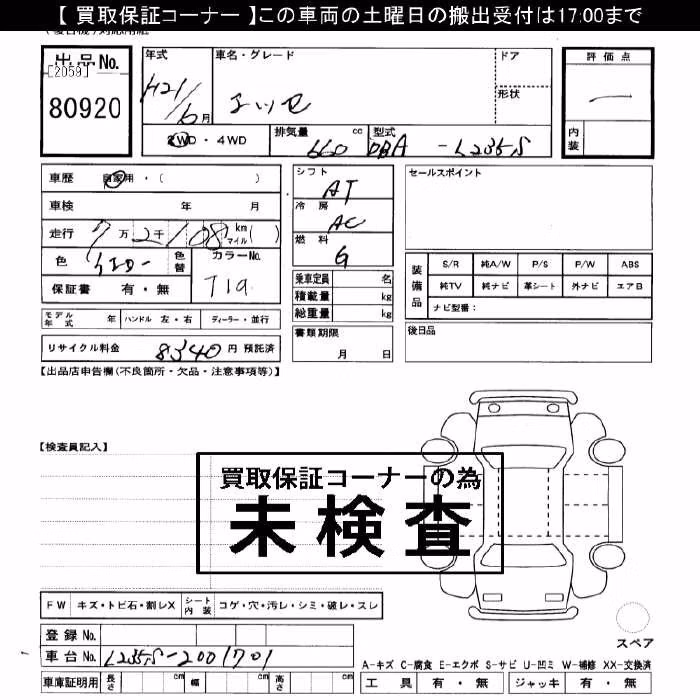 【 買取保証コーナー 】この車両の土曜日の搬出受付は17:00まで
出品No.
[2059]
80920
年式
H21/6月
車名・グレード
エッセ
ドア
形状
評価点
一
内装
2WD・4WD
排気量 660 cc
型式 DBA-L235S
車歴 自家用・( )
車検 年 月
走行 7万2千108 km マイル ( )
色 イエロー 色替 カラーNo.
保証書 有・無 T19
シフト AT
冷房 AC
燃料 G
セールスポイント
乗車定員 名
積載量 kg
総重量 kg
装備品
S/R 純A/W P/S P/W ABS
純TV 純ナビ 革シート 外ナビ エアB
ナビ型番:
モデル年式 年 ハンドル 左・右 ディーラー・並行
書類期限 月 日
後日品
リサイクル料金 8340 円 預託済
【出品店申告欄(不良箇所・欠品・注意事項等)】
【検査員記入】
買取保証コーナーの為
未検査
FW キズ・トビ石・割レX シート内装 コゲ・穴・汚レ・シミ・破レ・スレ
登録No.
車台No. L235S-2001701
スペア
A-キズ C-腐食 E-エクボ S-サビ U-凹ミ W-補修 XX-交換済
車庫証明用 長さ cm 幅 cm 高さ cm
工具 有・無 ジャッキ 有・無